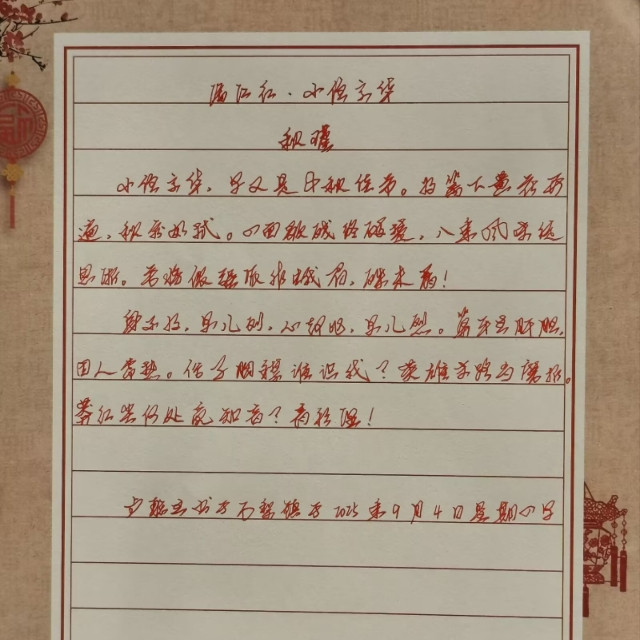 满江红·小住京华
秋瑾
小住京华,早又是中秋佳节。为篱下黄花开
遍,秋容如拭。四面歌残终破楚,八年风味徒
思浙。苦将侬强派作蛾眉,殊未屑!
身不得,男儿列,心却比,男儿烈。算平生肝胆,
因人常热。俗子胸襟谁识我?英雄末路当磨折。
莽红尘何处觅知音?青衫湿!
2025年9月4日星期四